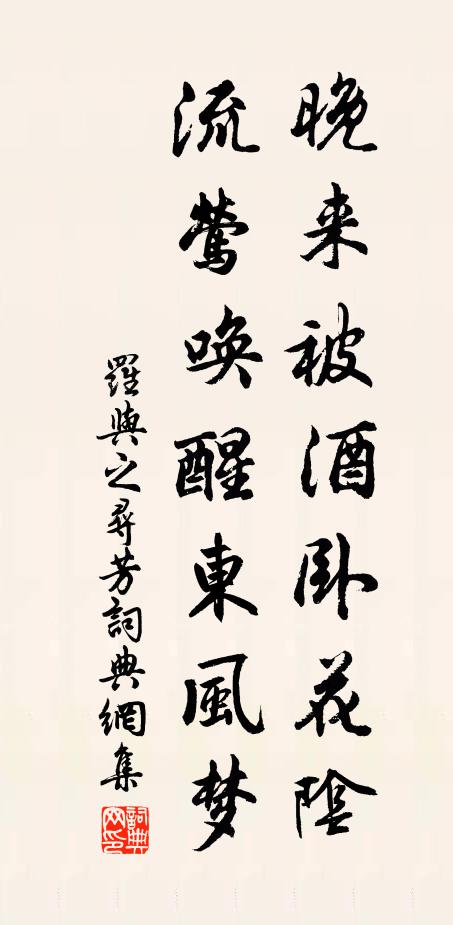 晚来被酒卧花陰
流莺唤醒東風梦
羅與之尋芳詞典網集
詞典網印